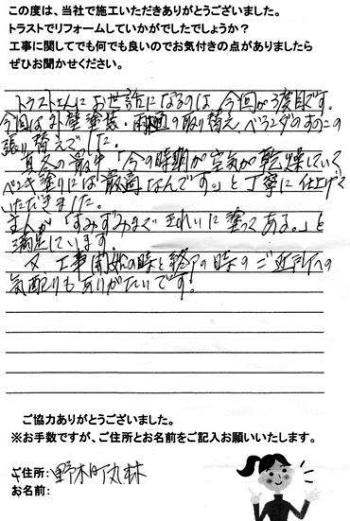 この度は、当社で施工いただきありがとうございました。
トラストでリフォームしていかがでしたでしょうか？
工事に関してでも何でも良いのでお気付きの点がありましたら
ぜひお聞かせください。
トラストさんにお世話になるのは、今回が3度目です。
今回は外壁塗装・雨樋の取り替え、ベランダのすのこの
張り替えでした。
真冬の最中「今の時期が空気が乾燥していて
ペンキ塗りには最高なんです。」と丁寧に仕上げて
いただきました。
主人が「すみずみまできれいに塗ってある。」と
満足しています。
又、工事開始の時と終了の時のご近所への
気配りもありがたいです!
ご協力ありがとうございました。
※お手数ですが、ご住所とお名前をご記入お願いいたします。
ご住所: 野木町丸林
お名前: